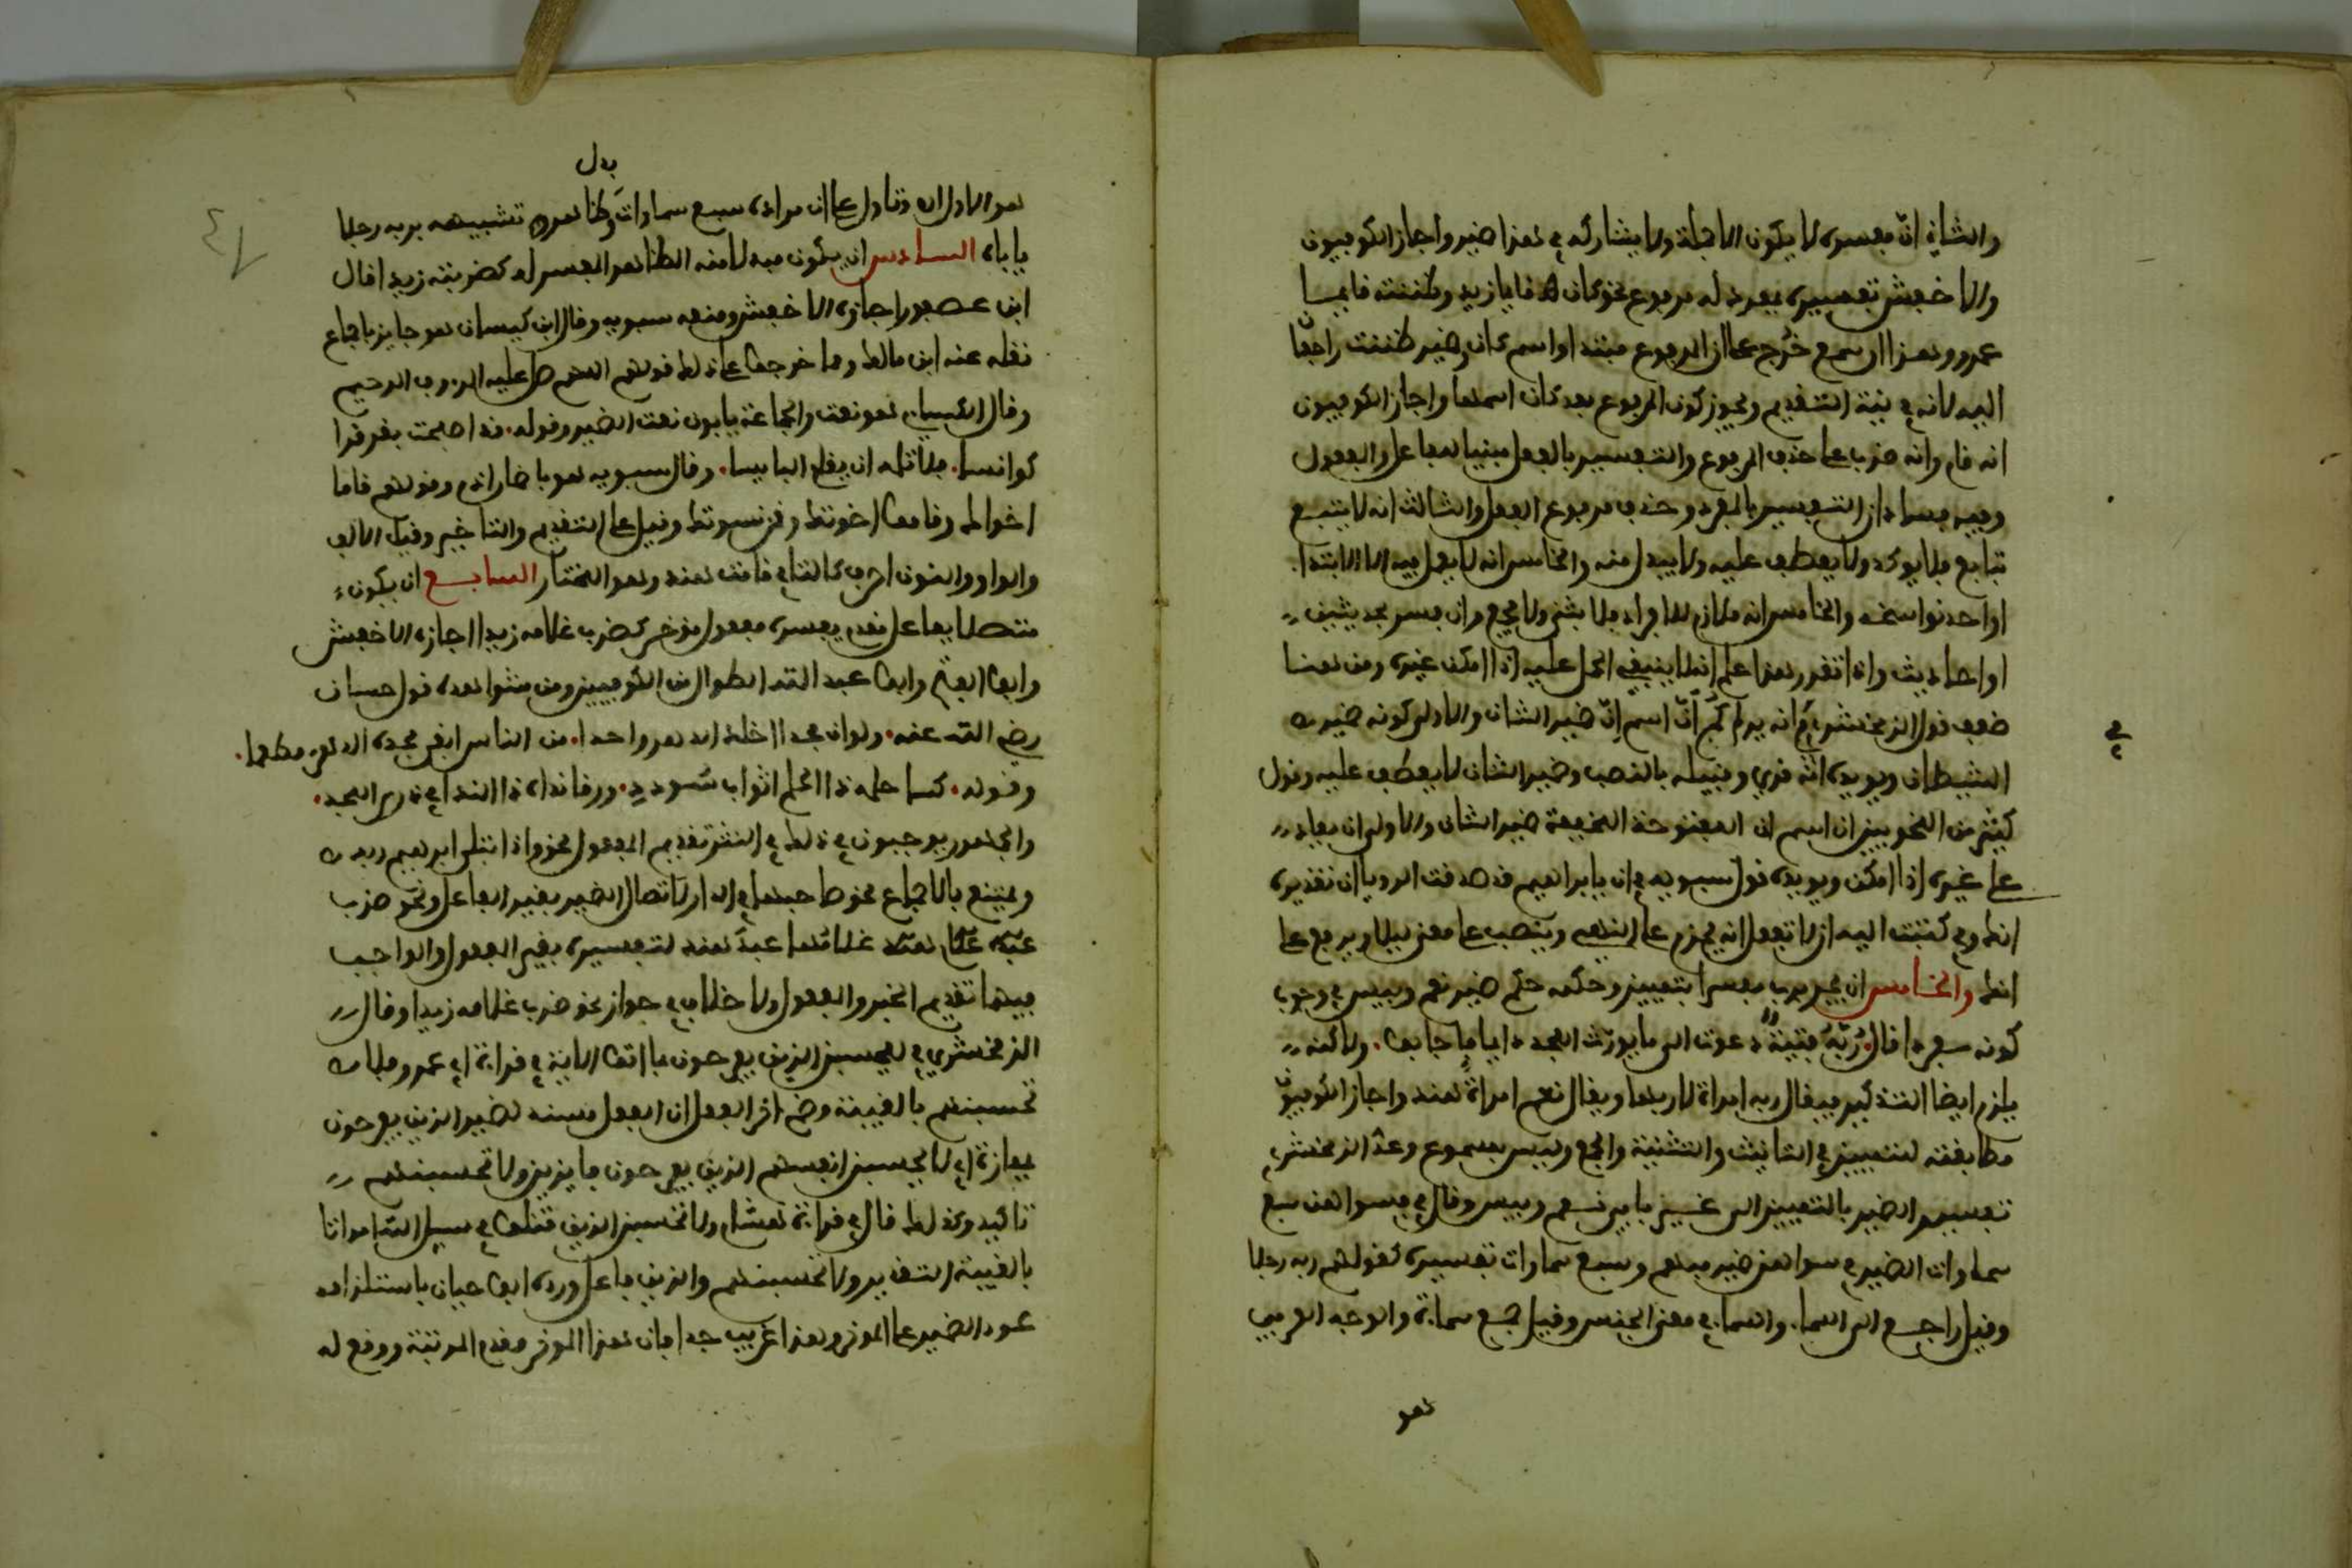 والثاني ان مفسره لا يكون الا جملة ولا يشاركه في هذا ضمير واجاز الكوفيون
والاخفش تفسيره بمفرد له مرفوع نحو كان قائما زيد وظننته قائما
عمرو وهذا ان سمع خرج على ان المرفوع مبتدا واسم كان وضمير ظننت راجعان
اليه لانه في نية التقديم ويجوز كون المرفوع بعد كان اسمها واجاز الكوفيون
انه قام وانه ضرب على حذف المرفوع والتفسير بالفعل مبنيا للفاعل والمفعول
وفيه فسادان التفسير بالمفرد وحذف مرفوع الفعل والثالث انه لا يتبع
بتابع فلا يوكد ولا يعطف عليه ولا يبدل منه والخامس انه لا يعمل فيه الا الابتدا
او احد نواسخه والخامس انه ملازم للافراد فلا يثنى ولا يجمع وان فسر بحديثين
او احاديث واذا تقرر هذا علم انه لا ينبغي الحمل عليه اذا امكن غيره ومن هنا
ضعف قول الزمخشري في انه يريكم ان اسم ان ضمير الشان والاولى كونه ضمير
في
الشيطان ويويده انه قري وقبيله بالنصب وضمير الشان لا يعطف عليه وقول
كثير من النحويين ان اسم ان المفتوحة المخففة ضمير الشان والاولى ان يعاد
على غيره اذا امكن ويويده قول سيبويه في ان يا ابراهيم قد صدقت الرويا ان تقديره
انك وفي كتبت اليه ان لا تفعل انه يجزم على النهي وينصب على معنى ليلا ويرفع على
انك والخامس ان يجر برب مفسرا بتمييز وحكمه حكم ضمير نعم وبيس في وجوب
كونه مفردا قال ربه فتية دعوت الى ما يورث المجد دايما فاجابوا ولاكنه
يلزم ايضا التذكير فيقال ربه امراة لا ربها ويقال نعم امراة هند واجاز الكوفيون
مطابقته للتمييز في التانيث والتثنية والجمع وليس بمسموع وعند الزمخشري
تفسير الضمير بالتمييز الى غير بابي نعم وبيس وقال في فسواهن سبع
سماوات الضمير في سواهن ضمير مبهم وسبع سماوات تفسيره كقولهم ربه رجلا
وقيل راجع الى السما والسما في معنى الجنس وقيل جمع سماة والوجه العربي
هو
بدل
هو الاول اه وتاول على ان مراده سبع سماوات وظاهره تشبيهه بربه رجلا
ياباه السادس ان يكون مبدلا منه الظاهر المفسر له كضربته زيدا قال
ابن عصفور اجازه الاخفش ومنعه سيبويه وقال ابن كيسان هو جايز باجماع
نقله عنه ابن مالك ومما خرجوا على ذلك قولهم اللهم صل عليه الروف الرحيم
وقال الكسايي هو نعت والجماعة يابون نعت الضمير وقوله قد اصبحت بقرقرا
كوانسا فلا تلمه ان ينام البايسا وقال سيبويه هو باضمار اذم وقولهم قاما
اخواك وقاموا اخوتك وقمن نسوتك وقيل على التقديم والتاخير وقيل الالف
والواو والنون احرف كالتا في قامت هند وهو المختار السابع ان يكون
متصلا بفاعل مقدم مفسره مفعول موخر كضرب غلامه زيدا اجازه الاخفش
وابو الفتح وابو عبد الله الطوال من الكوفيين ومن شواهده قول حسان
رضي الله عنه ولو ان مجدا اخلد الدهر واحدا من الناس ابقى مجده الدهر مطعما
وقوله كسا حلمه ذا الحلم اثواب سودد ورقا نداه ذا الندا في ذرى المجد
والجمهور يوجبون في ذلك في النثر تقديم المفعول نحو واذ ابتلى ابراهيم ربه
ويمتنع بالاجماع نحو صاحبها في الدار لاتصال الضمير بغير الفاعل ونحو ضرب
غلامها عبد هند لتفسيره بغير المفعول والواجب
فيهما تقديم الخبر والمفعول ولا خلاف في جواز نحو ضرب غلامه زيد وقال
الزمخشري في لا يحسبن الذين يفرحون بما اتوا الاية في قراءة ابي عمرو فلا
تحسبنهم بالغيبة وضم اخر الفعل ان الفعل مسند لضمير الذين يفرحون
بمفازة اي لا يحسبن انفسهم الذين يفرحون فايزين ولا تحسبنهم
تاكيد وكذلك قال في قراءة هشام ولا تحسبن الذين قتلوا في سبيل الله امواتا
بالغيبة التقدير ولا تحسبنهم والذين فاعل ورده ابو حيان باستلزامه
عود الضمير على الموخر وهذا غريب جدا فان هذا الموخر مقدم المرتبة ووقع له